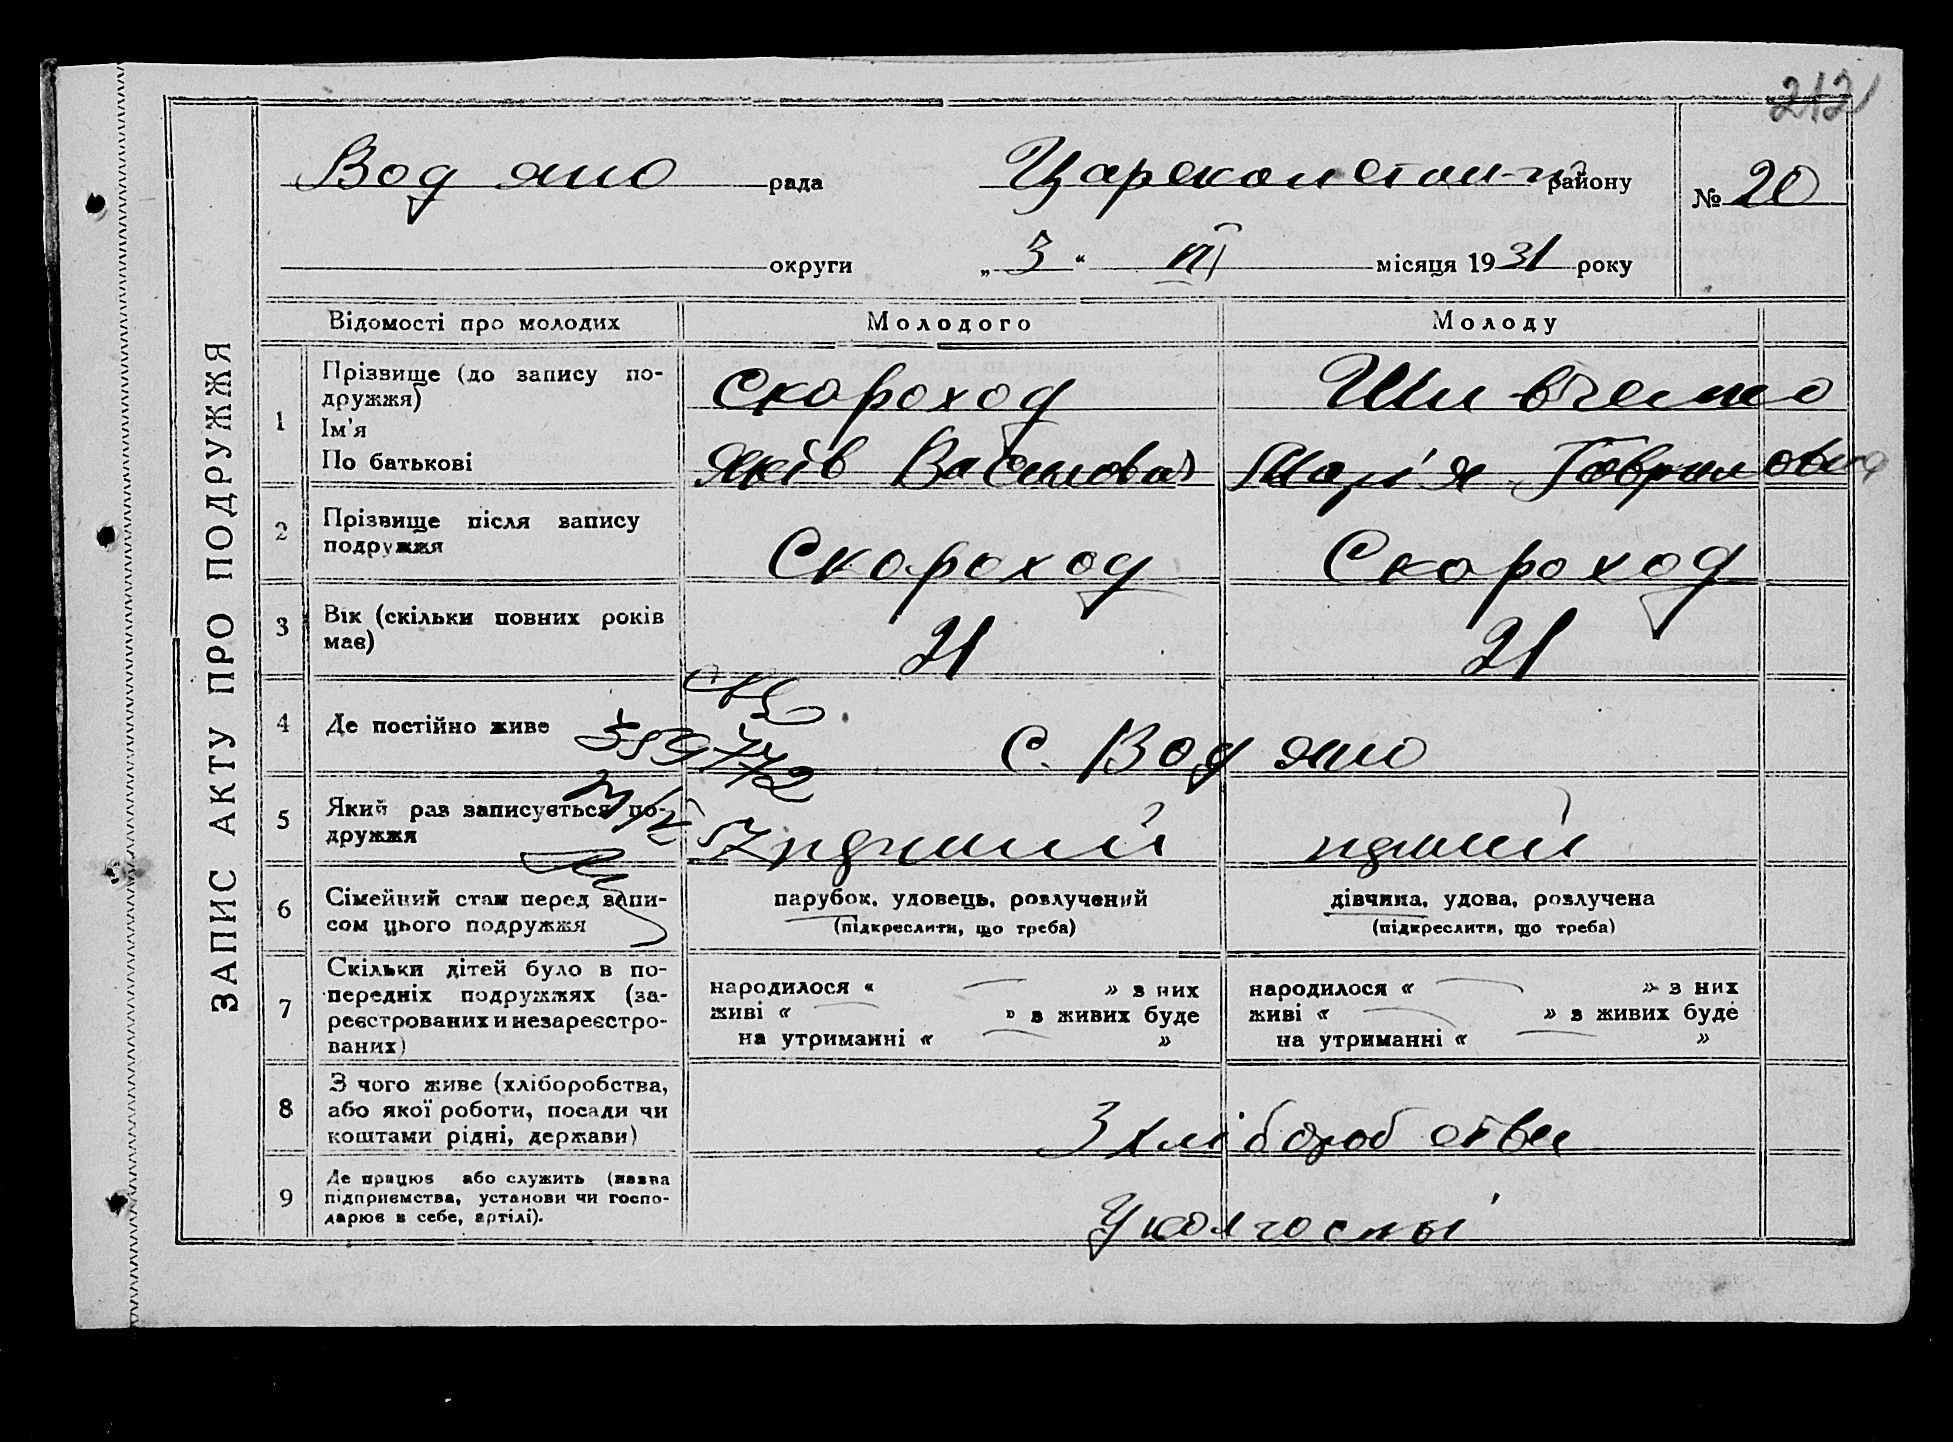 212
ЗАПИС АКТУ ПРО ПОДРУЖЖЯ
Водяно рада Царсконстан-й району № 20
округи „ 3 “ VII місяця 1931 року
Відомості про молодих Молодого Молоду
1 Прізвище (до запису по-
дружжя)
Ім'я
По батькові
Скороход
Яків Васильович
Марія Гавриловна
2 Прізвище після запису
подружжя
Скороход Скороход
3 Вік (скільки повних років
має)
21 21
4 Де постійно живе
С. Водяно
5 Який раз записується по-
дружжя
перший перший
6 Сімейний стан перед запи-
сом цього подружжя
парубок, удовець, розлучений
(підкреслити, що треба)
дівчина, удова, розлучена
(підкреслити, що треба)
7 Скільки дітей було в по-
передніх подружжях (за-
реєстрованих и незареєстро-
ваних)
народилося « — » з них
живі « — » з живих буде
на утриманні « — »
народилося « — » з них
живі « — » з живих буде
на утриманні « — »
8 З чого живе (хліборобства,
або якої роботи, посади чи
коштами рідні, держави)
З хліборобства
9 Де працює або служить (назва
підприємства, установи чи госпо-
дарює в себе, артілі).
У колгоспі